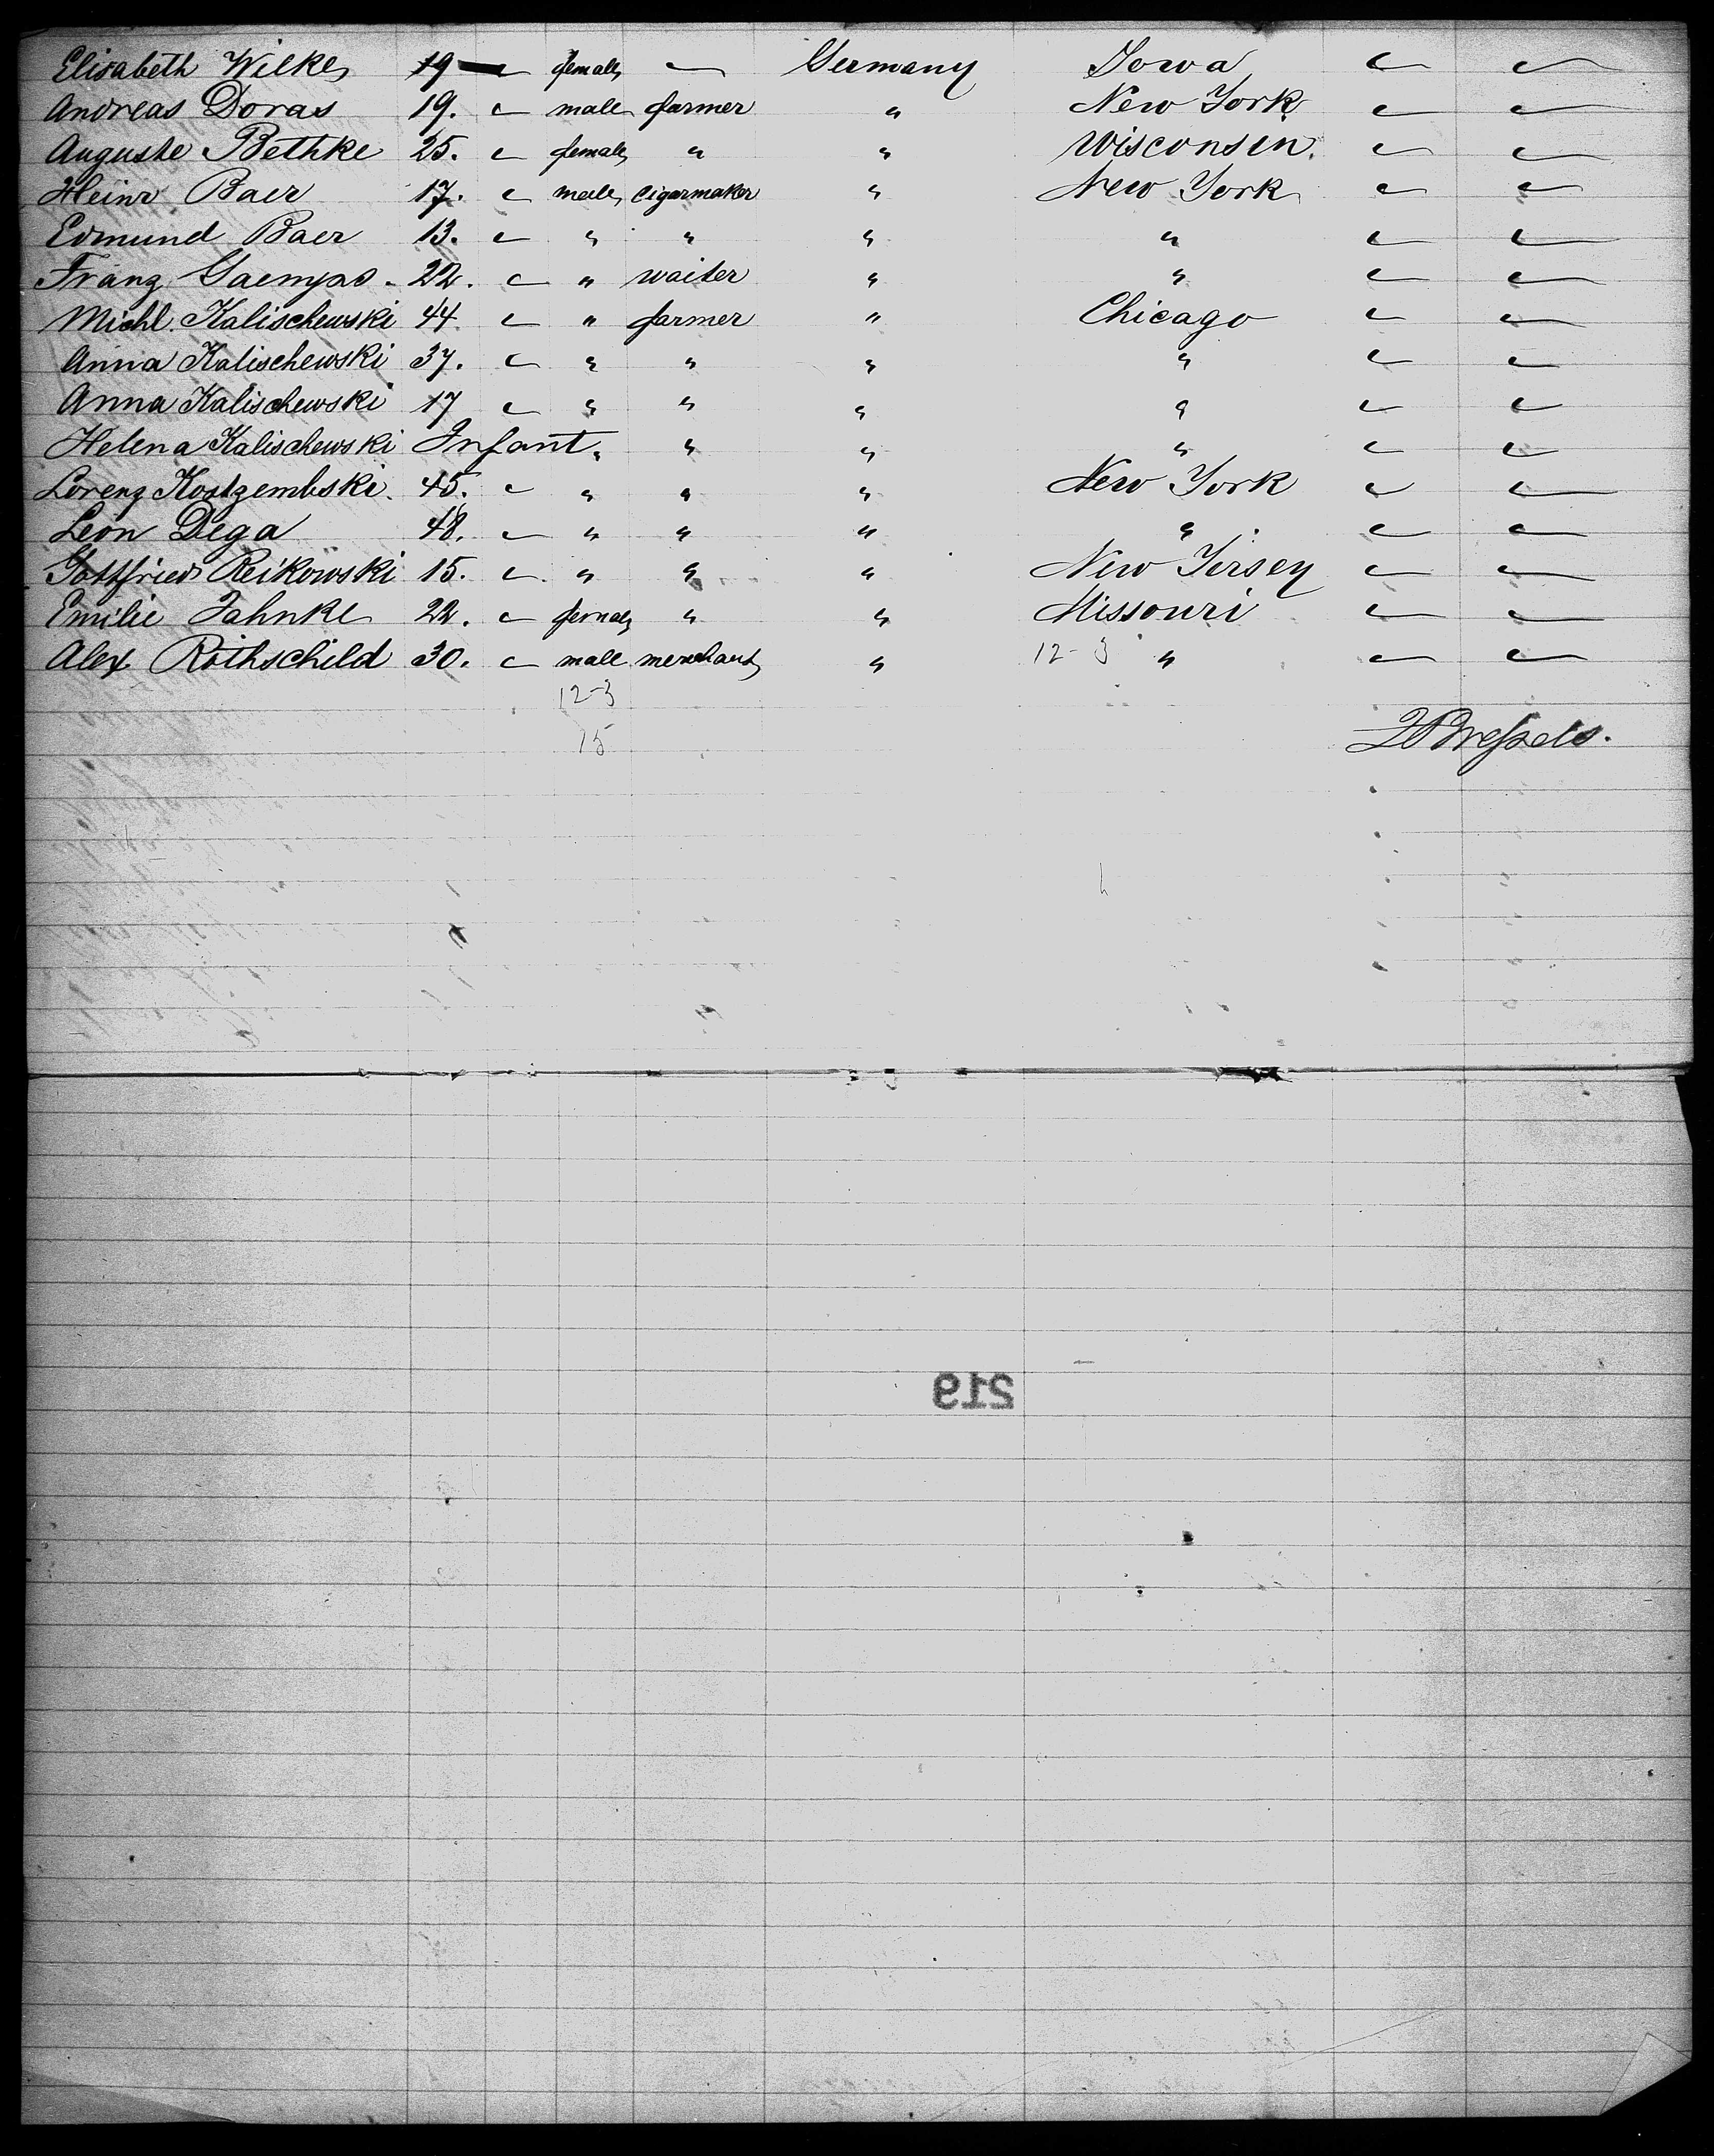 Elisabeth Wilke 19 — female — Germany Iowa — —
Andreas Doras 19. — male farmer " New York — —
Auguste Bethke 25. — female " " Wisconsin. — —
Heinr Baer 17. — male cigarmaker " New York — —
Edmund Baer 13. — " " " " — —
Franz 22. — " waiter " " — —
Michl. Kalischewski 44 — " farmer " Chicago — —
Anna Kalischewski 37. — " " " " — —
Anna Kalischewski 17 — " " " " — —
Helena Kalischewski Infant. " " " — —
Lorenz 45. — " " " New York — —
Leon Dega 48. — " " " " — —
Gottfried Reikowski 15. — " " " New Jersey — —
Emilie Jahnke 22. — female " " Missouri — —
Alex Rothschild 30. — male merchant " 12-3 " — —
12-3
15
219